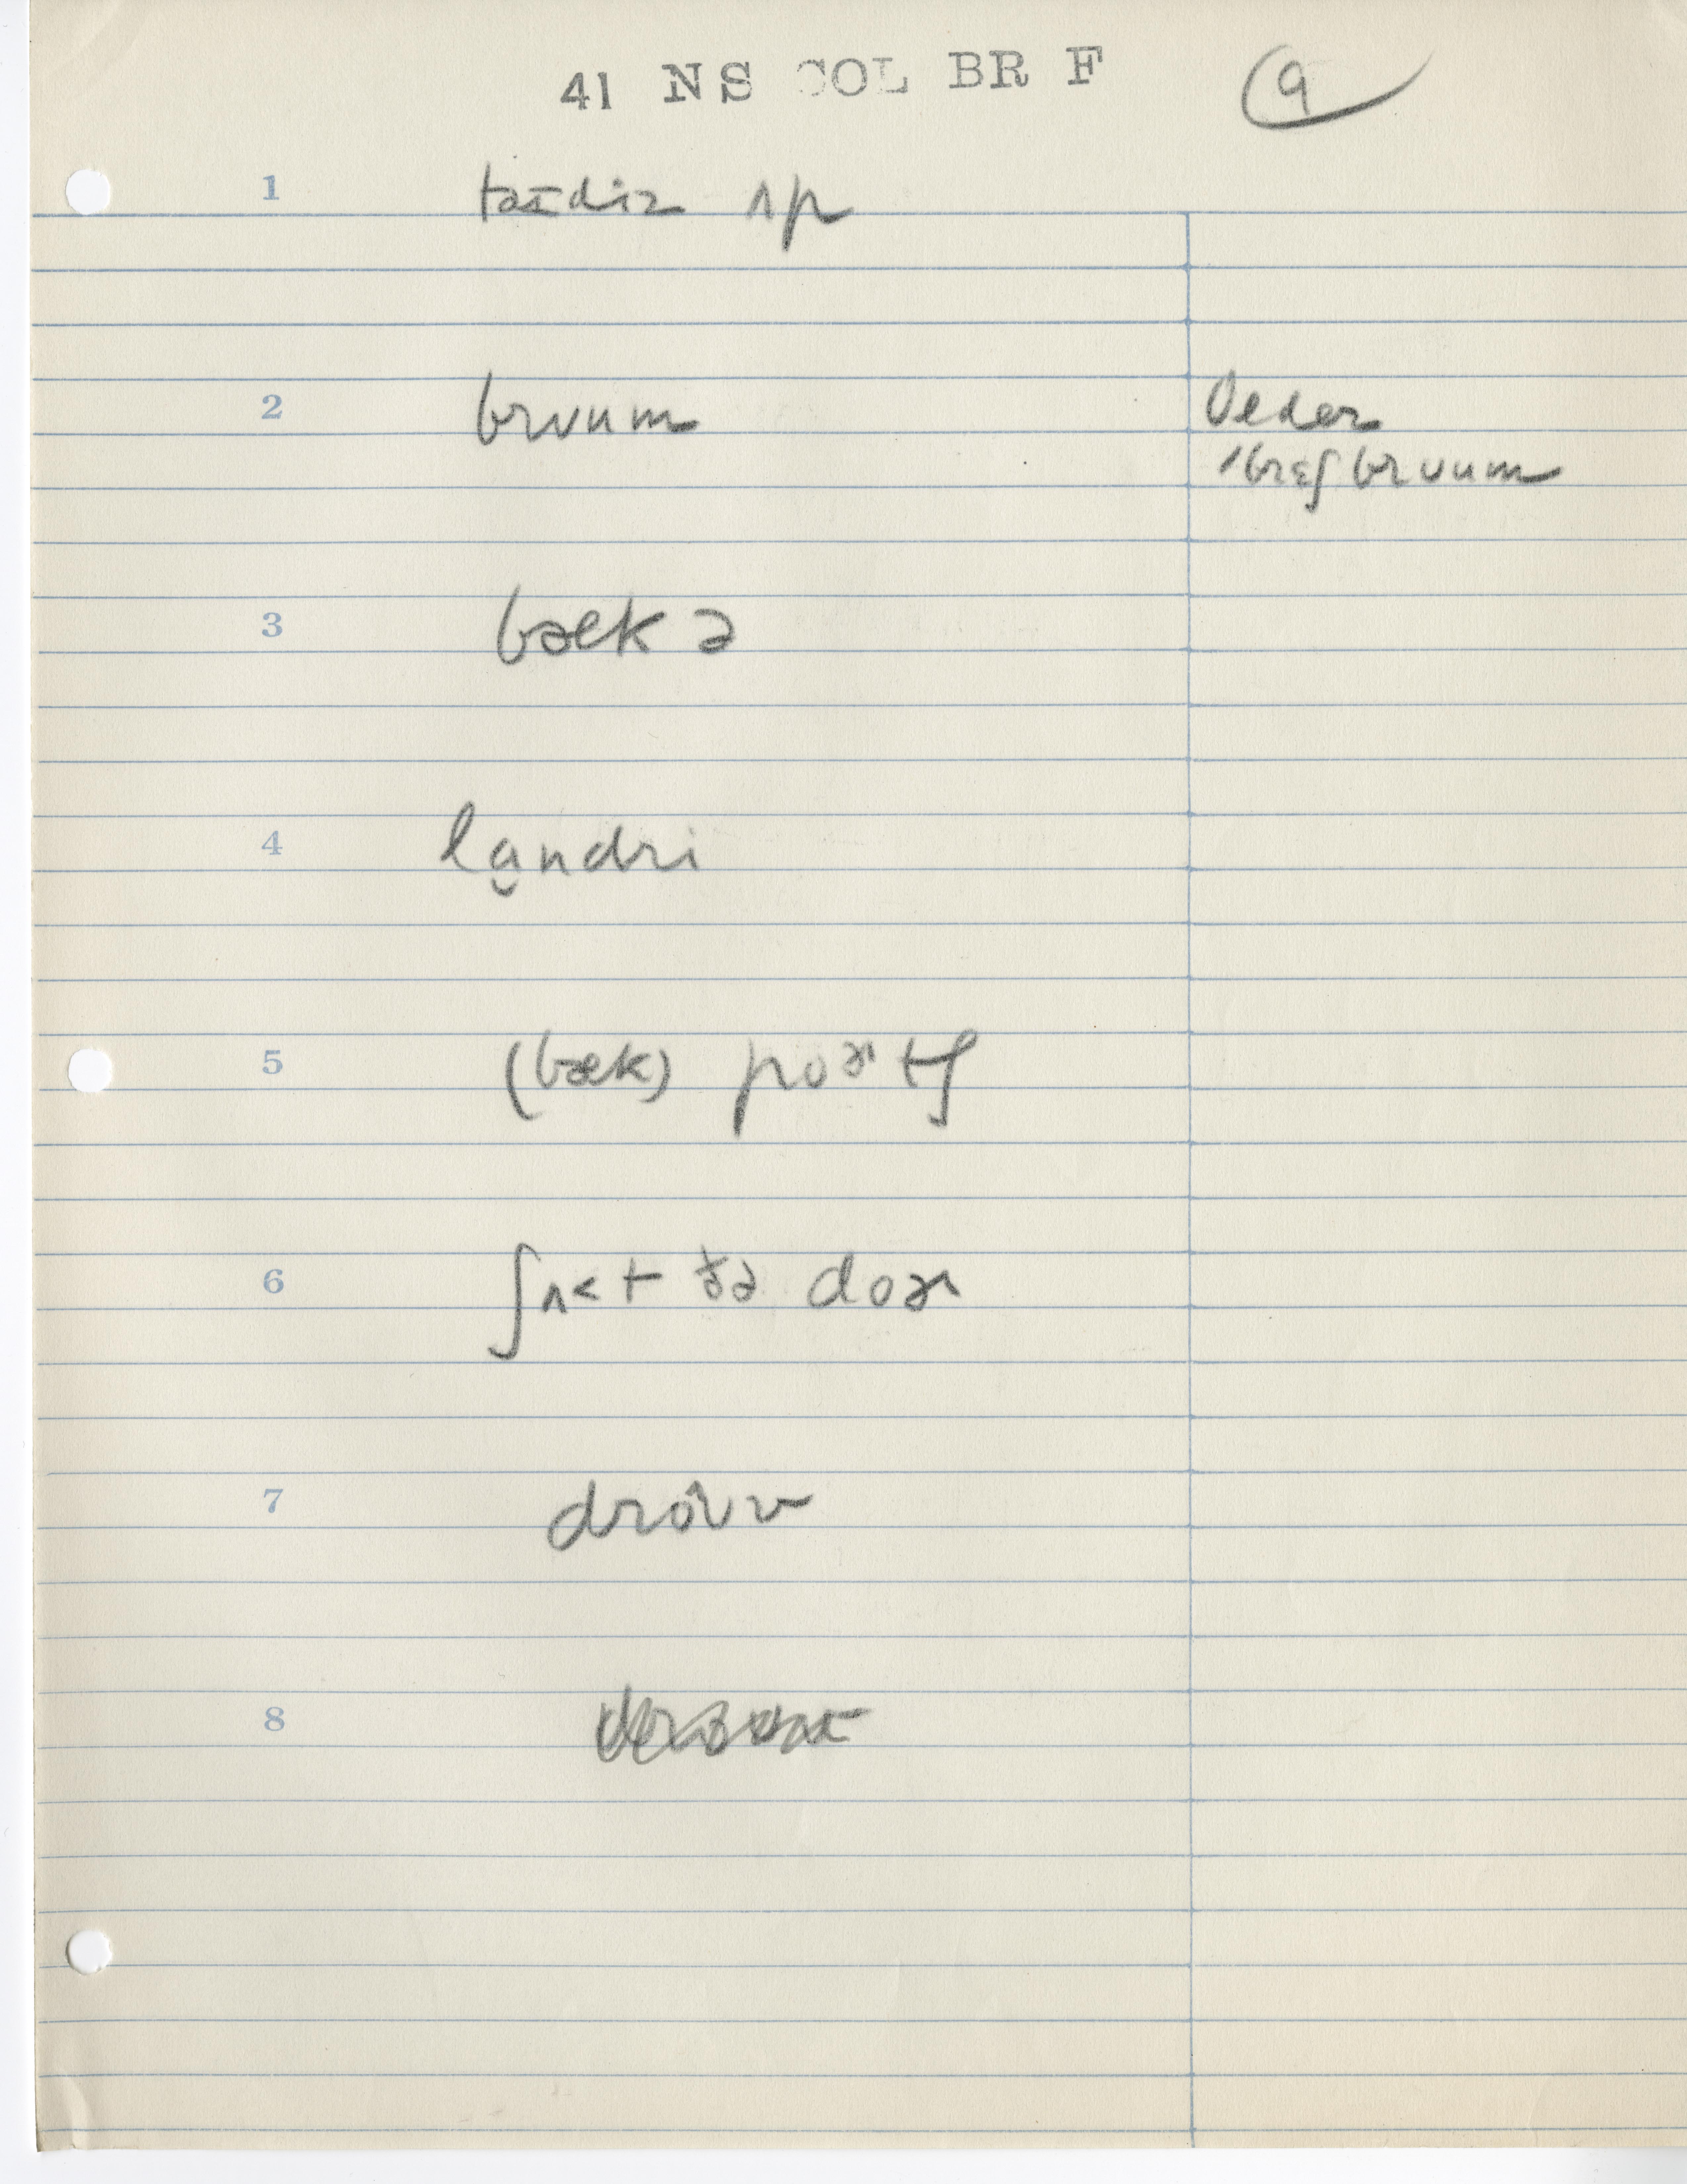 41 NS COL BR F 9
1 taɪdiz ʌp
2 brʊum Oeder
ˈbrɛʃ brʊum
3 bæk ə
4 lɑ̬ndri
5 (bæk) poɚtʃ
6 ʃʌ<t ðə doɚ
7 drôʊv
8